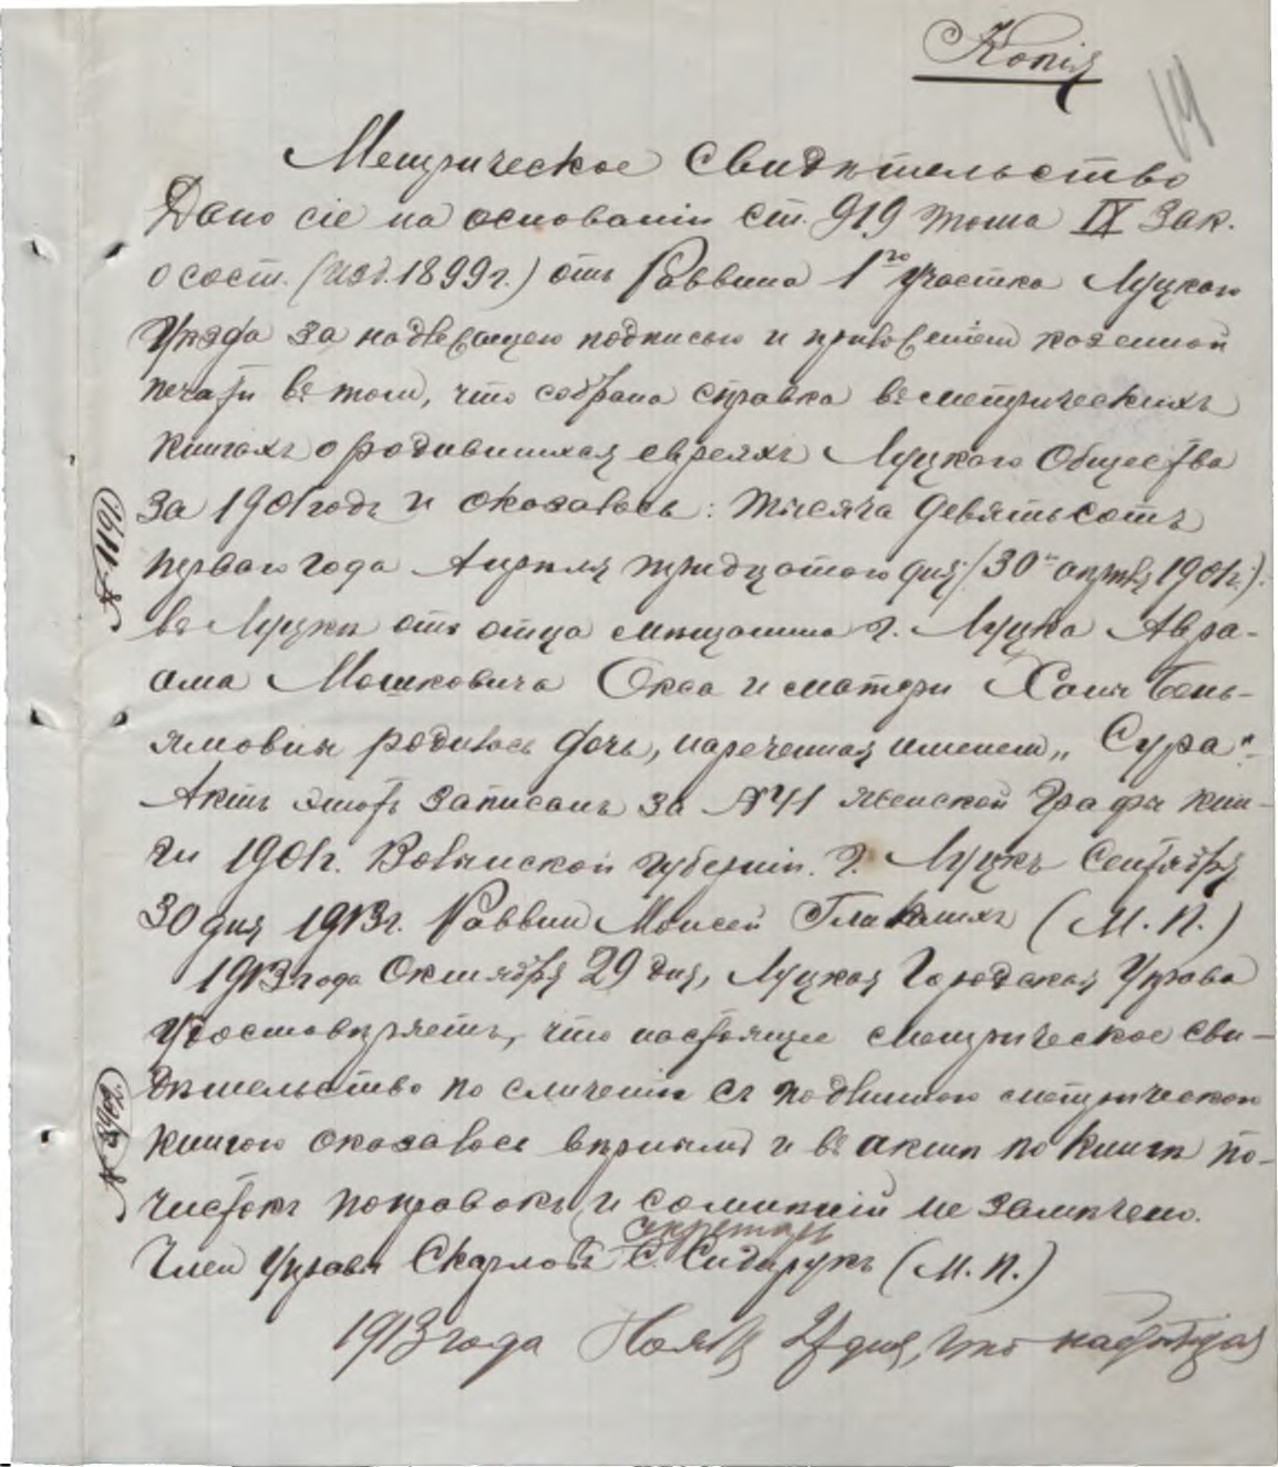 Копія
14
Метрическое Свидѣтельство
Дано сіе на основаніи ст. 919 тома IX Зак.
о сост. (изд. 1899 г.) отъ Раввина 1го участка Луцкаго
Уѣзда за надлежащею подписью и приложеніемъ казенной
печати въ томъ, что собрана справка въ метрическихъ
книгахъ о родившихся евреяхъ Луцкаго Общества
за 1901 годъ и оказалось: тысяча девятьсотъ
№ 1191
перваго года Апрѣля тридцатаго дня (30го апрѣля 1901 г.)
въ Луцкѣ отъ отца мѣщанина г. Луцка Авра-
ама Мошковича Окса и матери Хаи Бень-
ямовны родилась дочь, нареченная именемъ „Сура".
Актъ этотъ записанъ за № 41 женской графы кни-
ги 1901 г. Волынской губерніи. г. Луцкъ Сентября
30 дня 1913 г. Раввинъ Моисей (М. П.)
1913 года Октября 29 дня, Луцкая Городская Управа
удостовѣряетъ, что настоящее метрическое сви-
дѣтельство по сличеніи съ подлинною метрическою
№ 3902
книгою оказалось вѣрнымъ и въ актѣ по книгѣ по-
чистокъ поправокъ и сомнѣній не замѣчено.
секретарь
Членъ Управы С. Сидорукъ (М. П.)
1913 года Ноября дня, что настоящая